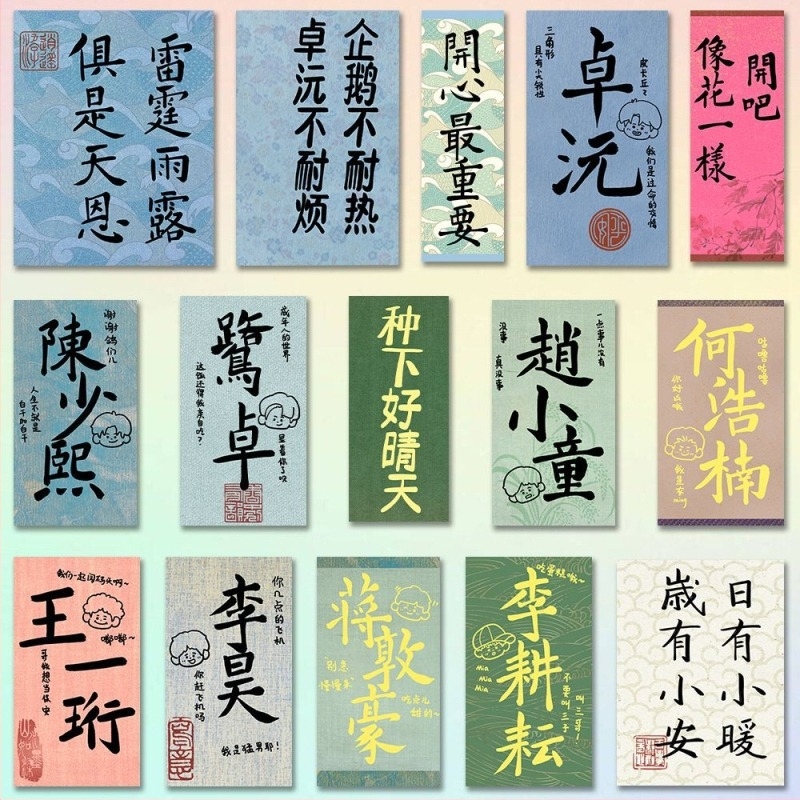 雷霆雨露
俱是天恩
企鹅不耐热
卓沅不耐烦
開心最重要
三角形
具有稳定性
卓沅
我们是过命的交情
開吧
像花一樣
谢谢鸽们儿
陳少熙
人生不就是
白干加白干
成年人的世界
鷺卓
这饭还得我亲自吃？
显着你了呗
种下好晴天
一点事儿没有
趙小童
没事
真没事
何浩楠
咕噜咕噜
你好之哦
我们一起闯码头啊~
王一珩
嘟嘟~
哥我想当保安
你几点的飞机
李昊
你赶飞机吗
我是猛男耶！
蔣敦豪
别急
慢慢来
吃点儿
甜的~
吃蛋糕哦~
李耕耘
mia
mia
mia
叫三哥！
不要叫三子
日有小暖
歲有小安